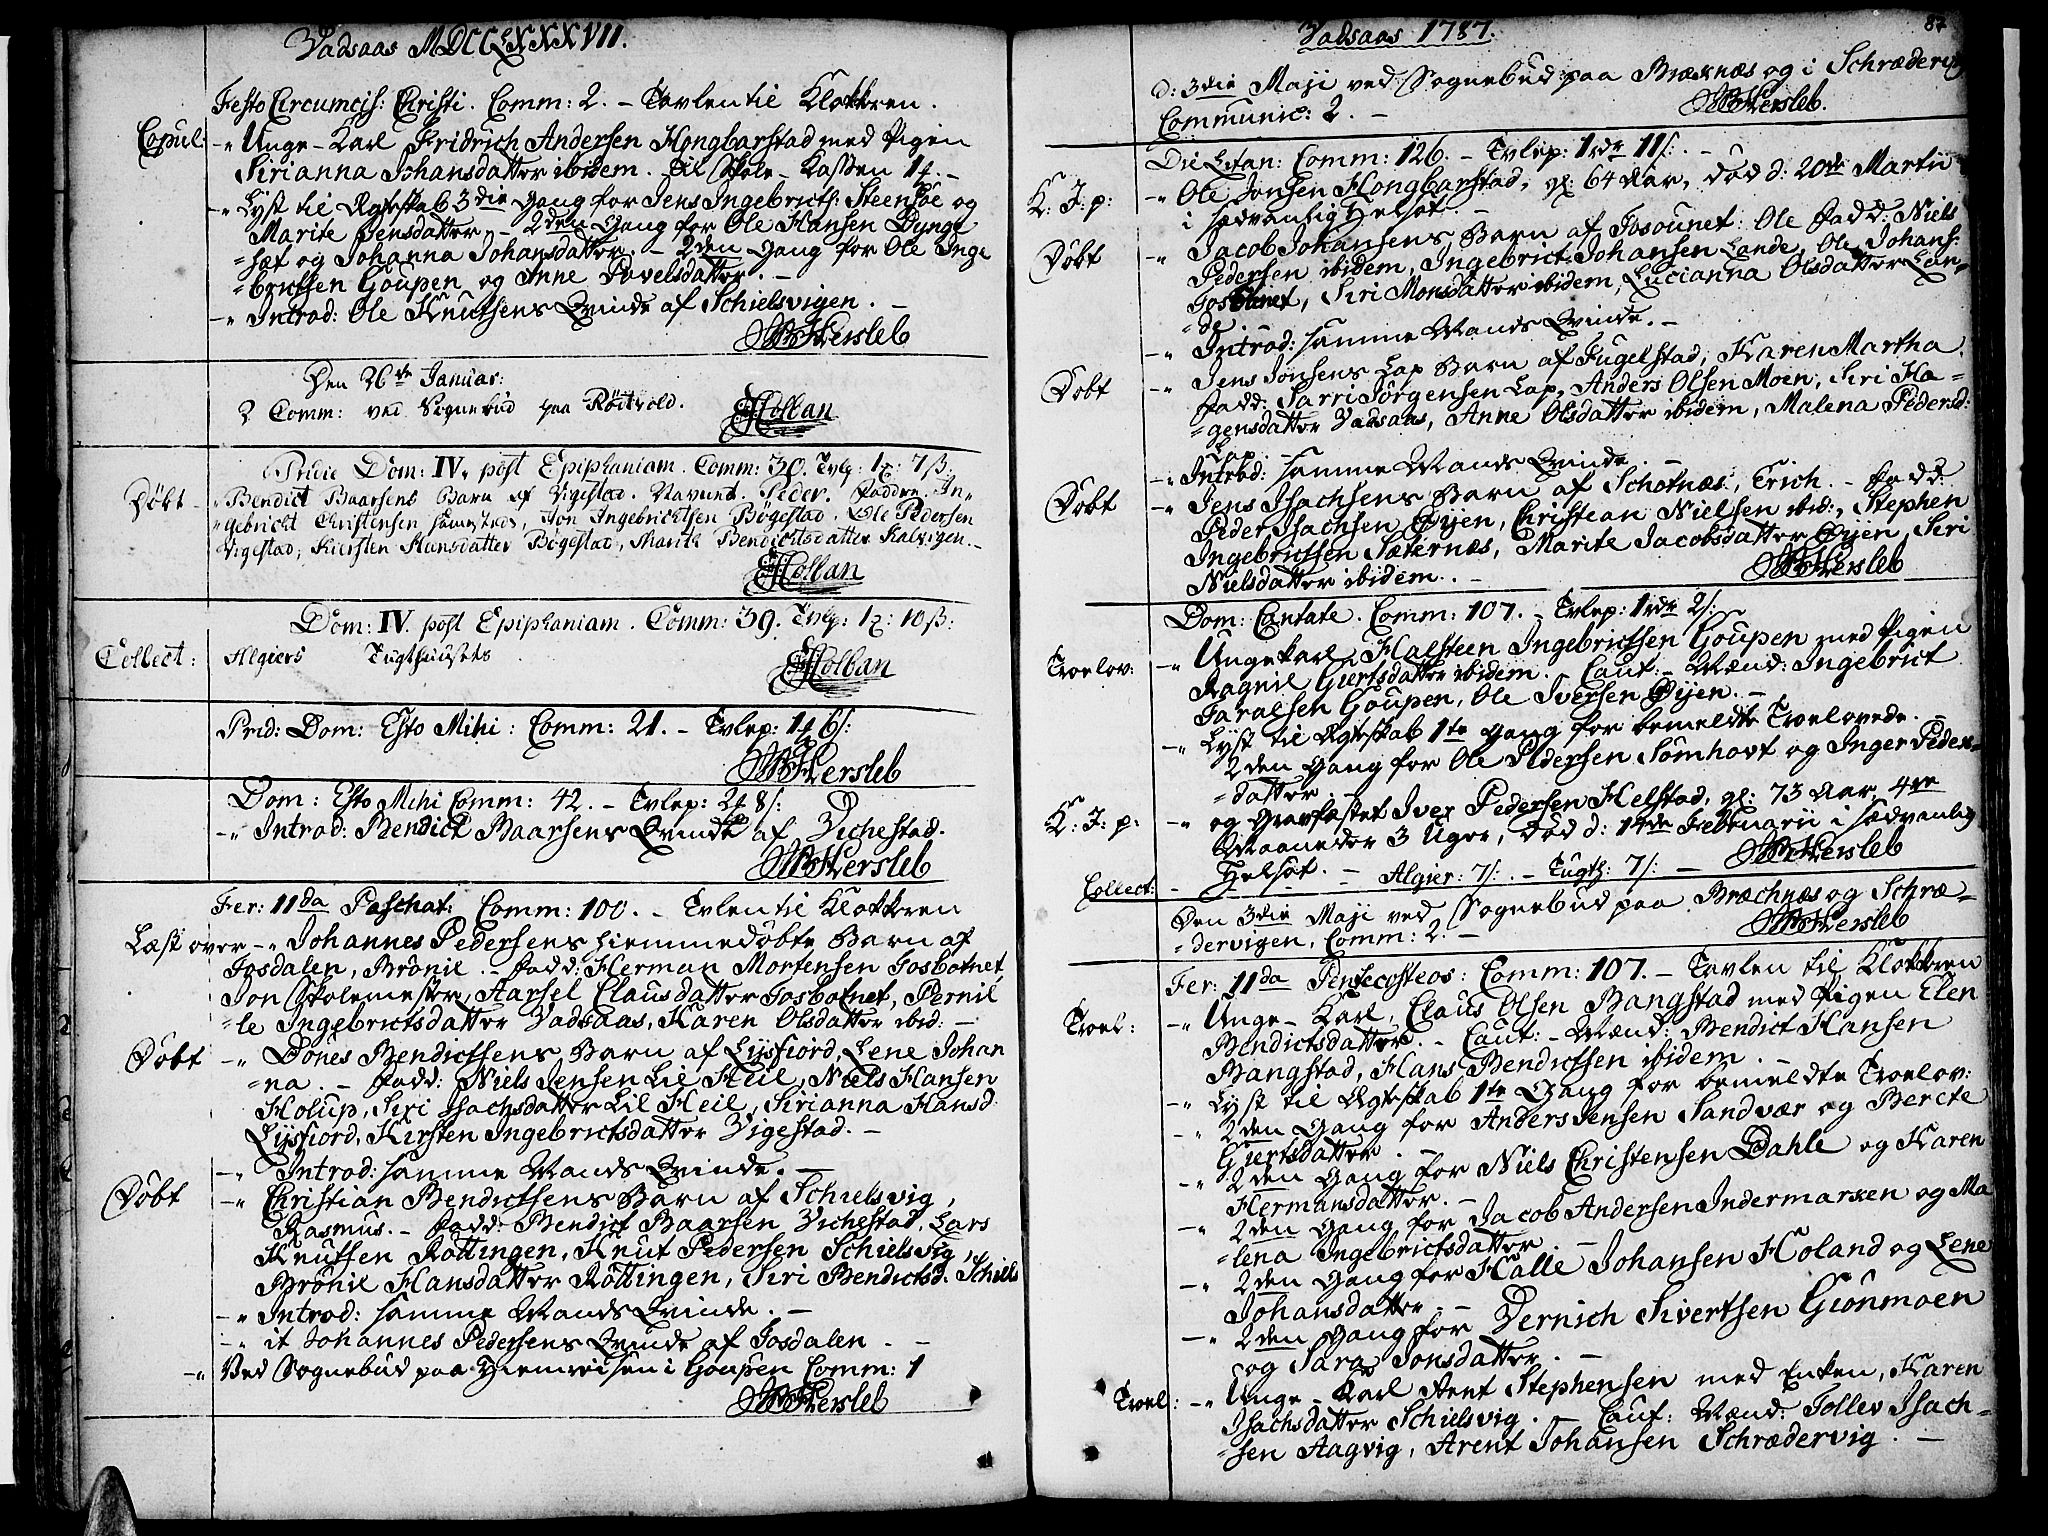 Vadsaas MDCCLXXXVII.
Festo Circumcis: Christi. Comm: 2. – Tavlen til Klokkeren.
Copul: –" Unge-Karl Fridrich Andersen Hongbarstad med Pigen
Sirianna Johansdatter ibidem. Til Skole-Kassen
–" Lyst til Ægteskab 3die Gang for Jens Ingebricts: Steensöe og
Marite Jensdatter, – 2den Gang for Ole Hansen Dynge
=sæt og Johanna Johansdatter. – 2den Gang for Ole Inge
=brictsen Goupen og Anne Povelsdatter. –
–" Introd: Ole Knutsens Qvinde af Schielsvigen. –
Hersleb
Den 26de Januar:
2 Comm: ved Sognebud paa Röitvold.
Holban
Pridie Dom: IV. post Epiphaniam. Comm: 30. Tvlp: 7 ß:
Döbt – Bendict Baarsens Barn af Vigestad. Navnet. Peder. Faddre, In=
=gebricht Christensen samesteds, Jon Ingebrichtsen Bögestad. Ole Pedersen
Vigestad, Kiersten Hansdatter Bögestad, Marit Bendichtsdatter Kalvigen. –
Holban
Dom: IV. post Epiphaniam. Comm: 39. Tvlp: 10 ß:
Collect: Algiers Tugthusets
Holban
Prid: Dom: Esto Mihi: Comm: 21. – Tvlep: 6 s:
Hersleb
Dom: Esto Mihi Comm: 42. – Tvlep: 8 s:
–" Introd: Bendict Baarsens Qvinde af Vichestad.
Hersleb
Fer: 11da Paschat: Comm: 100. – Tvlen til Klokkeren
Læst over –" Johannes Pedersens hiemmedöbte Barn af
Fosdalen, Brönil. – Fadd: Herman Mortensen Fosbotnet,
Jon Skolemester, Aarsel Clausdatter Fosbotnet, Pernil
=le Ingebrictsdatter Vadsaas, Karen Olsdatter ibid: –
Döbt –" Dönes Bendictsens Barn af Lysfiord, Lene Johan
=na. – Fadd: Niels Jensen Lil Heil, Niels Hansen
Holup, Siri Isachsdatter Lil Heil, Sirianna Hansd
Lysfiord, Kirsten Ingebrictsdatter Vigestad. –
–" Introd: samme Mands Qvinde. –
Döbt –" Christian Bendictsens Barn af Schielsvig,
Rasmus. – Fadd: Bendict Baarsen Vichestad, Lars
Knutsen Röttingen, Knut Pedersen Schielsvig,
Brönil Hansdatter Röttingen, Siri Bendictsd: Schiels
–" Introd: samme Mands Qvinde. –
–" it Johannes Pedersens Qvinde af Fosdalen. –
–" Ved Sognebud paa Hiemreisen i Goupen Comm: 1
Hersleb
Vadsaas 1787.
87
d: 3die Maji ved Sognebud paa Bræknæs og i Schrædervig
Communic: 2. –
Hersleb.
Die Litan: Comm: 126. – Tvlep: 1 rdr 11 s: –
K: J: p: –" Ole Jonsen Hongbarstad, gl: 64 Aar, död d: 20de Martii
i sædvanlig Helsot. –
Döbt –" Jacob Johansens Barn af Fosbunet: Ole Fadd: Niels
Pedersen ibidem, Ingebrict Johansen Lande, Ole Johans:
Fosbunet, Siri Monsdatter ibidem, Lucianna Olsdatter Lan=
=de
–" Introd: samme Mands Qvinde. –
Döbt –" Jens Jonsens Lap Barn af Fugelstad, Karen Martha.
Fadd: Sarri Jörgensen Lap, Anders Olsen Moen, Siri Ha=
=gensdatter Vadsaas, Anne Olsdatter ibidem, Malena Pedersd:
Lap. –
–" Introd: samme Mands Qvinde
Döbt –" Jens Isachsens Barn af Schotnæs, Erich. – Fadd:
Peder Isachsen Öijen, Christean Nielsen ibid:, Stephen
Ingebrictsen Sæternæs, Marite Jacobsdatter Öijen, Siri
Nielsdatter ibidem. –
Hersleb
Dom: Cantate. Comm: 107. – Tvlep: 1 rdr 2 s:
Trolov: –" Ungekarl Halsteen Ingebrictsen Goupen med Pigen
Ragnil Giertsdatter ibidem. Caut: – Mænd: Ingebrict
Taralsen Goupen, Ole Iversen Öijen. –
–" Lyst til Ægteskab 1te Gang for bemeldte Troelovede. –
2den Gang for Ole Pedersen Sömhovt og Inger Peders=
=datter. –
K: J: p: –" og Gravfæstet Iver Pedersen Helstad, gl: 73 Aar, 4re
Maaneder 3 Uger, död d: 14de Februarii i sædvanlig
Helsot. –
Hersleb
Collect: – Algier: 7 s: – Tugth: 7 s: –
Den 3die Maji ved Sognebud paa Bræchnæs og Schræ=
=dervigen, Comm: 2. –
Hersleb
Fer: 11da Pentecosteos: Comm: 107. – Tavlen til Klokkeren
Troel: –" Unge-Karl, Claus Olsen Bangstad med Pigen Elen
Bendictsdatter. – Caut: – Mænd: Bendict Hansen
Bangstad, Hans Bendictsen ibidem. –
–" Lyst til Ægteskab 1te Gang for bemeldte Troelov:
–" 2den Gang for Anders Jensen Sandvær og Berete
Giertsdatter. –
–" 2den Gang for Niels Christensen Dahle og Karen
Hermansdatter. –
–" 2den Gang for Jacob Andersen Indermarken og Ma
=lena Ingebrictsdatter –
–" 2den Gang for Halle Johansen Holand og Lene
Johansdatter. –
–" 2den Gang for Dernich Sivertsen Giönmoen
og Sara Jonsdatter. –
Troel: –" Unge-Karl Arnt Stephensen med Enken, Karen
Isachsdatter Schielsvig. – Caut: Mænd: Tollev Isach=
=sen Aagvig, Arent Johansen Schrædervig. –